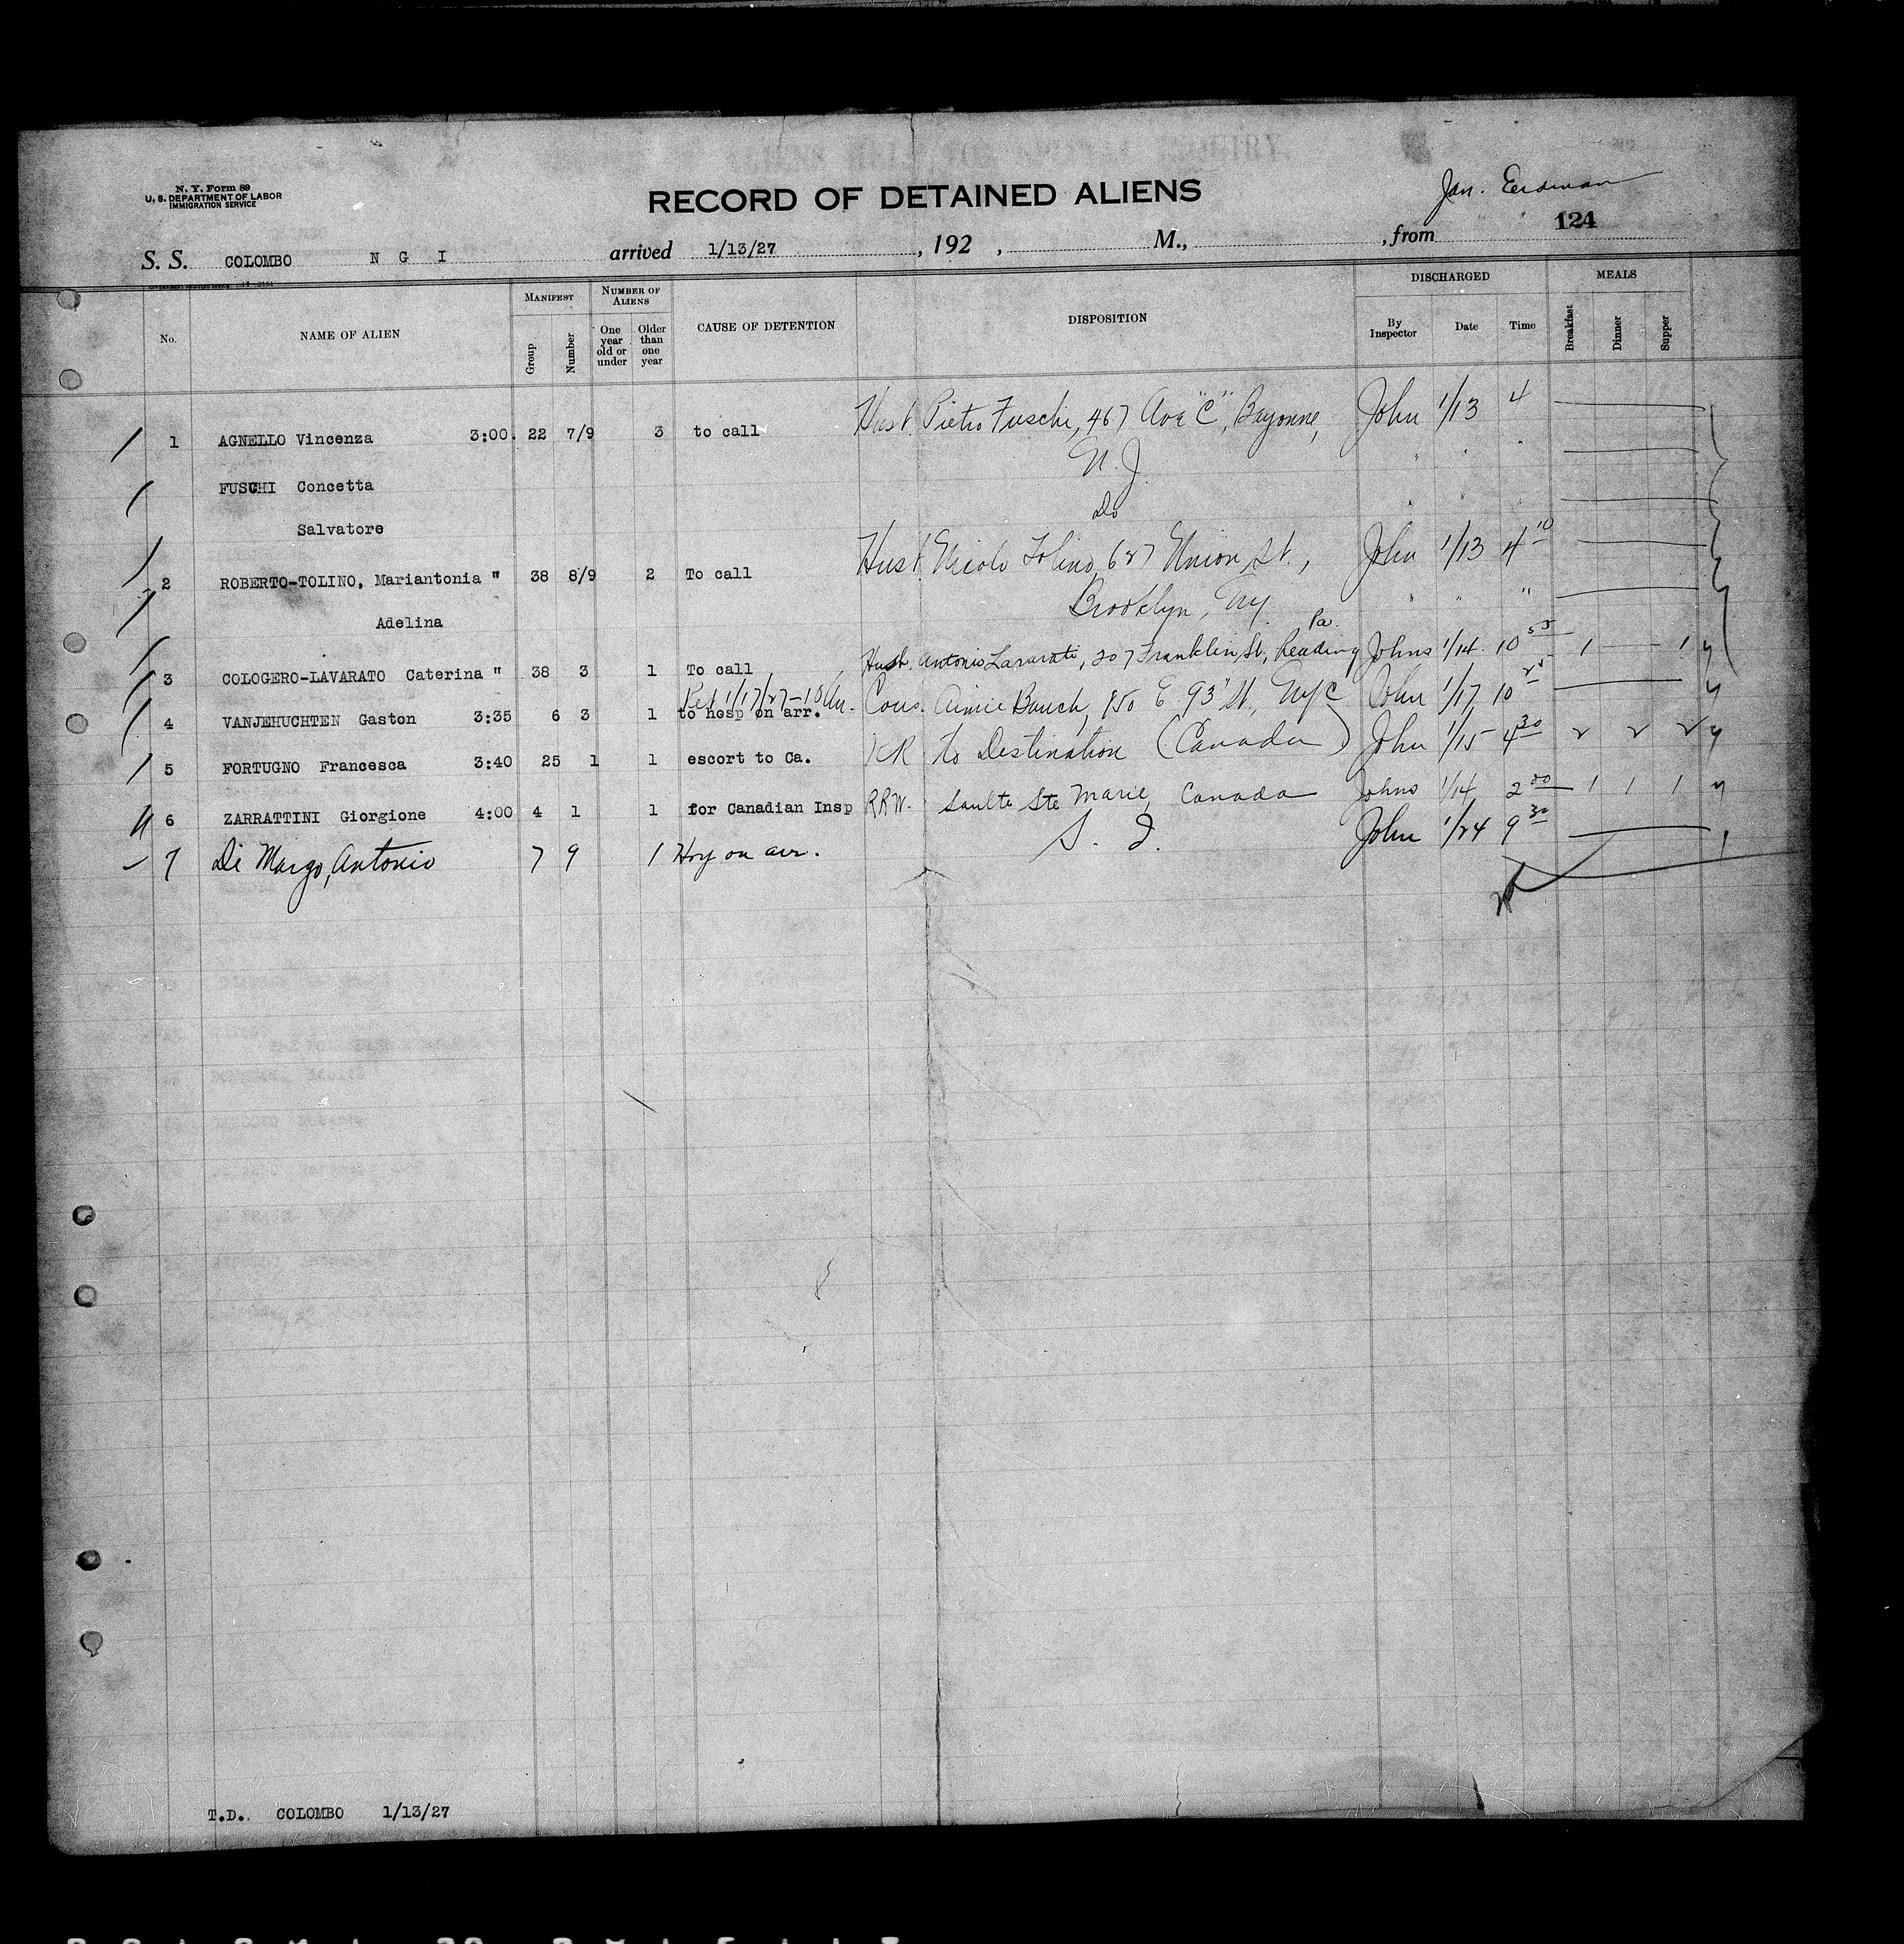 N. Y. Form 89
U. S. DEPARTMENT OF LABOR
IMMIGRATION SERVICE
RECORD OF DETAINED ALIENS
Jan. Erdman
124
S. S. COLOMBO N G I arrived 1/13/27, 192 , M., , from
No. NAME OF ALIEN MANIFEST NUMBER OF ALIENS CAUSE OF DETENTION DISPOSITION DISCHARGED MEALS
Group Number One year old or under Older than one year By Inspector Date Time Breakfast Dinner Supper
1 AGNELLO Vincenza 3:00. 22 7/9 3 to call Husb. Pietro Fuschi, 467 Ave "C", Bayonne, John 1/13 4
N. J.
FUSCHI Concetta
Salvatore Do
2 ROBERTO-TOLINO, Mariantonia " 38 8/9 2 To call Husb. Nicolo Tolino, 627 Union St., John 1/13 4 10
Brooklyn, Ny. " " "
Adelina
Pa.
3 COLOGERO-LAVARATO Caterina " 38 3 1 To call Husb. Antonio Lavarato, 207 Franklin St., Reading Johns 1/14 10 55 1 1
1/17/27-10
4 VANJEHUCHTEN Gaston 3:35 6 3 1 to hosp on arr. Cous. Aimie Bauch, 950 E. 93" St., NYC John 1/17 10
5 FORTUGNO Francesca 3:40 25 1 1 escort to Ca. to Destination (Canada) John 1/15 4 30 2 2 2
6 ZARRATTINI Giorgione 4:00 4 1 1 for Canadian Insp RRW. Saulte Ste Marie, Canada Johns 1/14 2 00 1 1 1
7 Di Margo, Antonio 7 9 1 on arr. S. I. John 1/24 9 30
T.D. COLOMBO 1/13/27